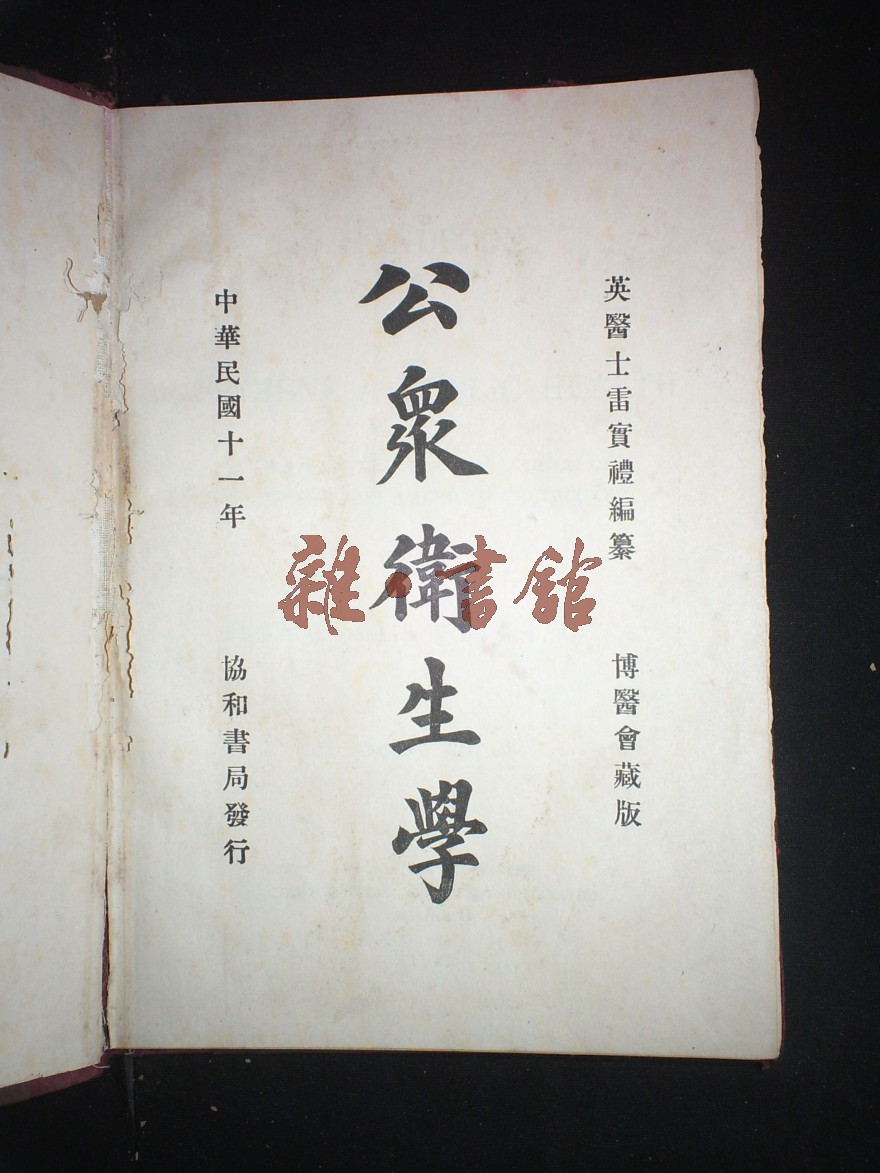 英醫士雷實禮編纂
博醫會藏版
公眾衛生學
中華民國十一年
協和書局發行
雜·書館